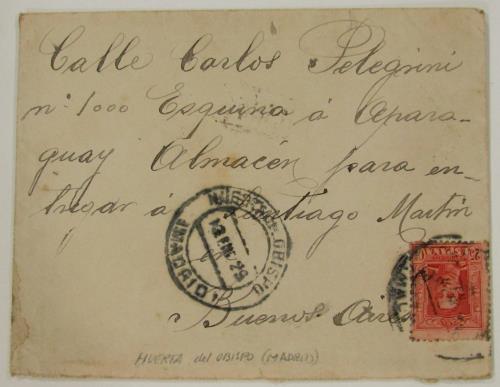 Calle Carlos Pelegrini
n° 1000 Esquina á Apara-
guay Almacén para en-
tregar á Santiago Martin
en
Buenos Aires
HUERTA DEL OBISPO
13 ENE 25
HUERTA del OBISPO (MADRID)